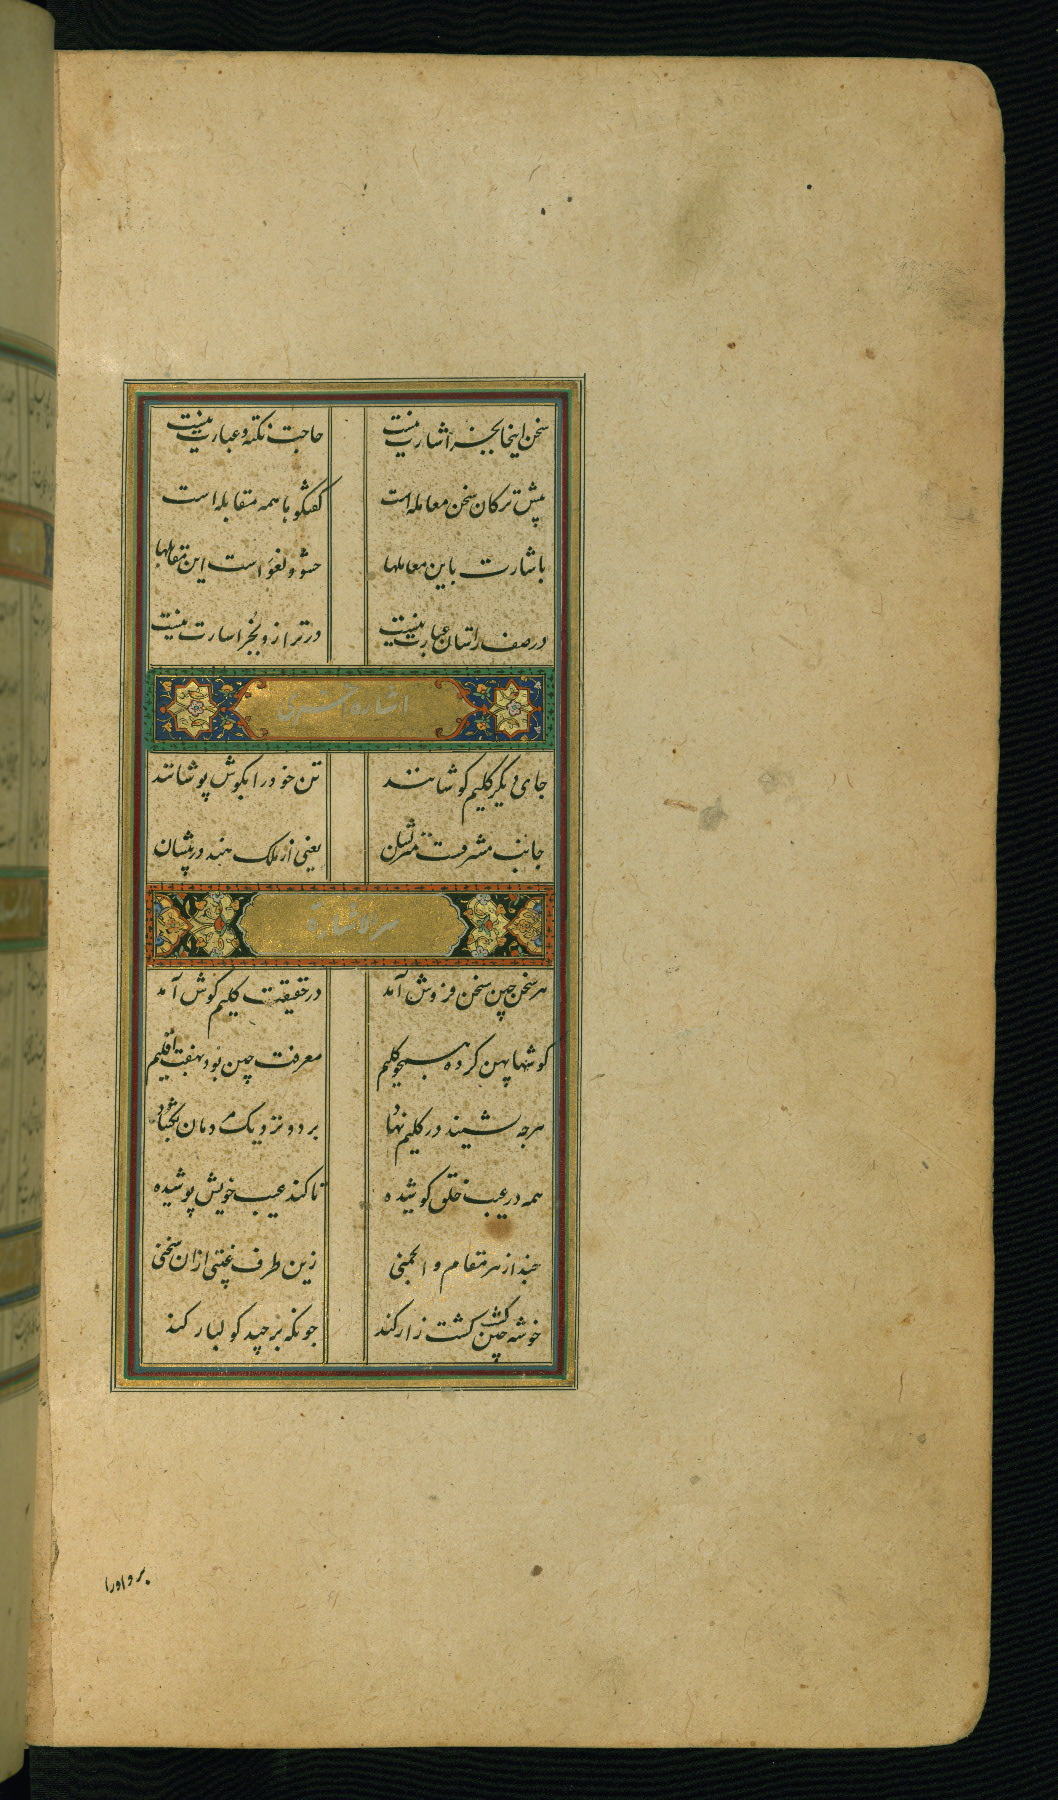 سخن اینجا بجز اشارت نیست حاجت نکته و عبارت نیست
پیش ترکان سخن معامله است گفتگو با همه مقابله است
باشارت باین معاملها حشو و لغو است این مقالها
در صف راستان عبارت نیست در ترازو بجز اشارت نیست
اشاره اخری
جای دیگر کلیم کوشانند تن خود را بکوش پوشانند
جانب مشرقست یعنی از ملک هند در پیشان
سر الاشارة
هر سخن چین سخن فروش آمد در حقیقت کلیم کوش آمد
کوشها پهن کرده همچو کلیم معرفت چین بود بهفت اقلیم
هرچه شنیند در کلیم نهاد برد و نزدیک
همه در عیب خلق کوشیده تا کند عیب خویش پوشیده
چند از هر مقام و انجمنی زین طرف غیبتی ازان سخنی
خوشه چین کشت کشت زار کند چونکه برچید کولبار کند
برو اورا